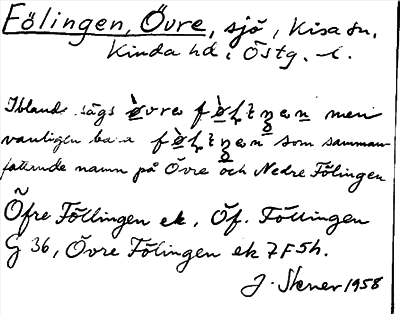 Fölingen, Övre, sjö, Kisa sn,
Kinda hd, Östg. l.
Ibland sägs övre men
vanligen bara som samman
fattande namn på Övre och Nedre Fölingen
Öfre Föllingen ek, Öf. Föllingen
G 36, Övre Fölingen ek 7F5h.
J. 1958